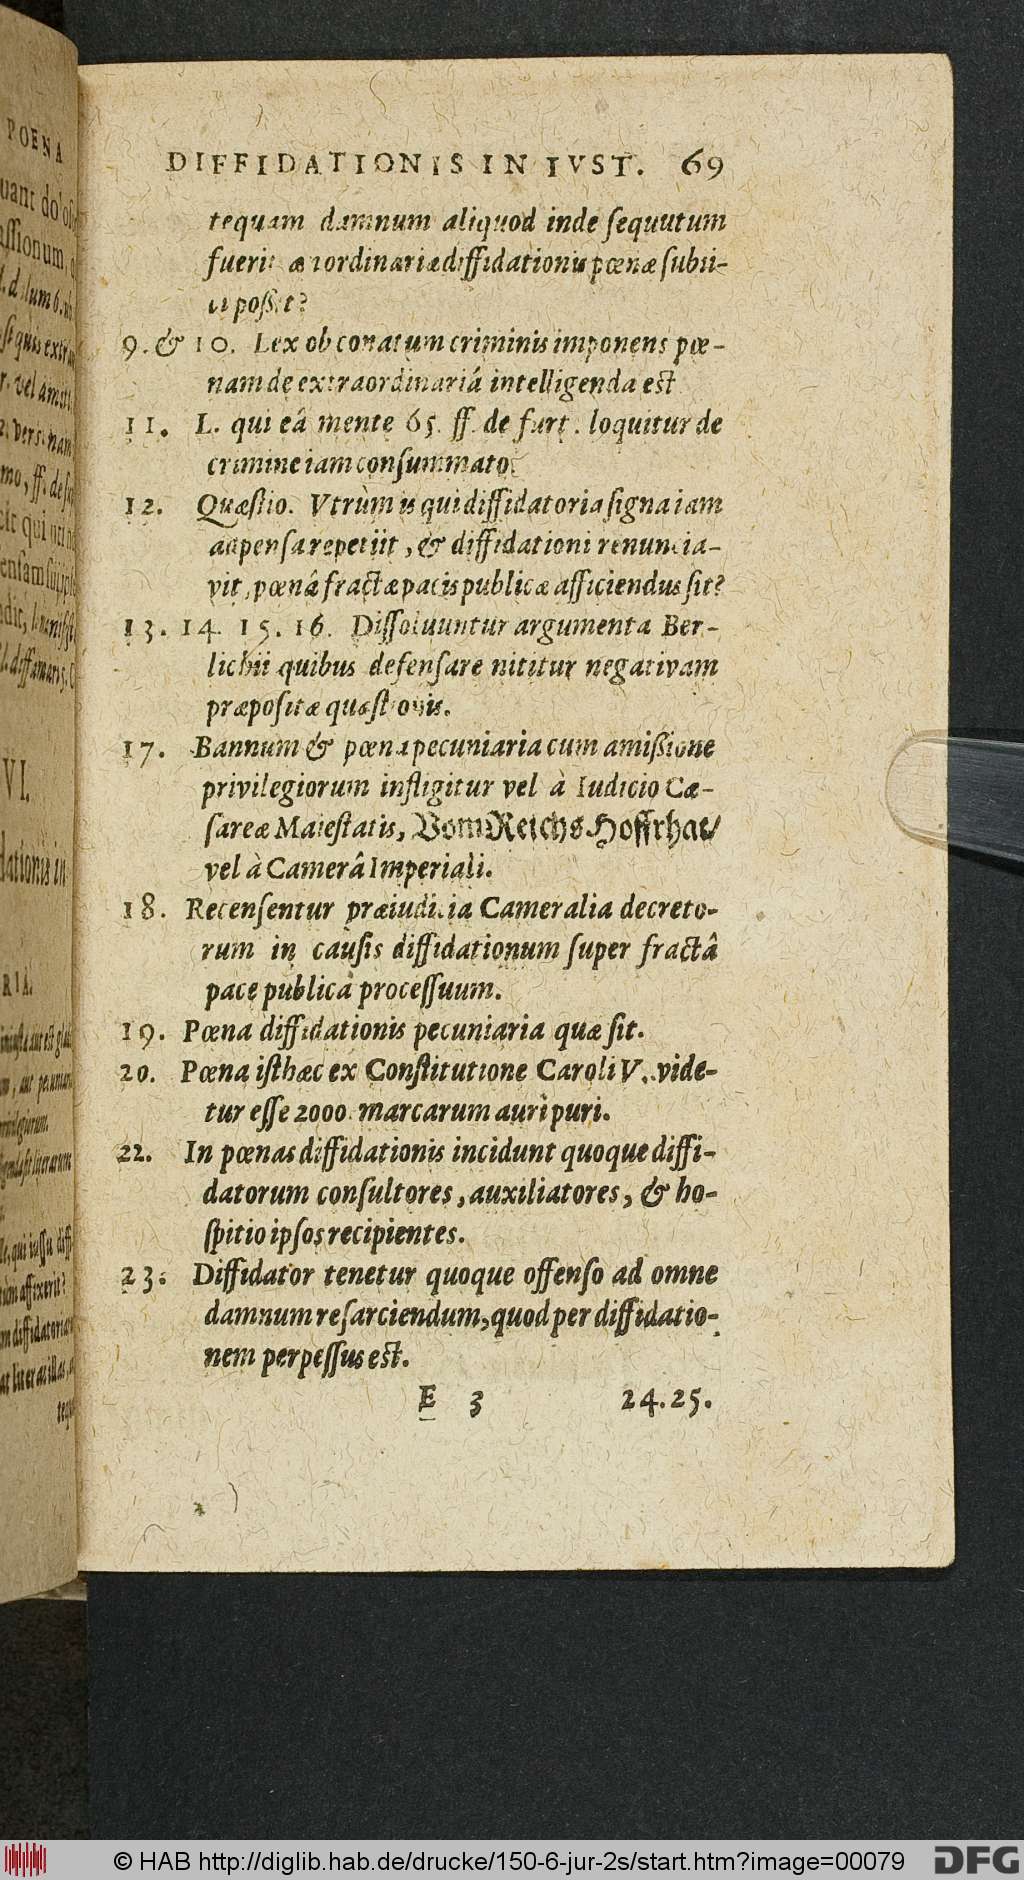 DIFFIDATIONIS IN IVST. 69
tequam damnum aliquod inde ſequutum
fuerit æ ordinariæ diffidationis pœnæ ſubii-
ci poſſit?
9. & 10. Lex ob conatum criminis imponens pœ-
nam de extraordinariâ intelligenda est
11. L. qui eâ mente 65. ff. de furt. loquitur de
crimine iam conſummato.
12. Quæſtio. Vtrùm is qui diffidatoria ſigna iam
adpenſa repetiit, & diffidationi renuncia-
vit, pœnâ fractæ pacis publicæ afficiendus ſit?
13. 14. 15. 16. Diſſoluuntur argumenta Ber-
lichii quibus defenſare nititur negativam
præpoſitæ quæſtionis.
17. Bannum & pœna pecuniaria cum amiſsione
privilegiorum infligitur vel à Iudicio Cæ-
ſareæ Maieſtatis, Vom Reichs Hoffrhat/
vel à Camerâ Imperiali.
18. Recenſentur præiudicia Cameralia decreto-
rum in cauſis diffidationum ſuper fractâ
pace publicâ proceſſuum.
19. Pœna diffidationis pecuniaria quæ ſit.
20. Pœna iſthæc ex Conſtitutione Caroli V. vide-
tur eſſe 2000. marcarum auri puri.
22. In pœnas diffidationis incidunt quoque diffi-
datorum conſultores, auxiliatores, & ho-
ſpitio ipſos recipientes.
23. Diffidator tenetur quoque offenſo ad omne
damnum reſarciendum, quod per diffidatio-
nem perpeſſus est.
E 3 24.25.
© HAB http://diglib.hab.de/drucke/150-6-jur-2s/start.htm?image=00079
DFG